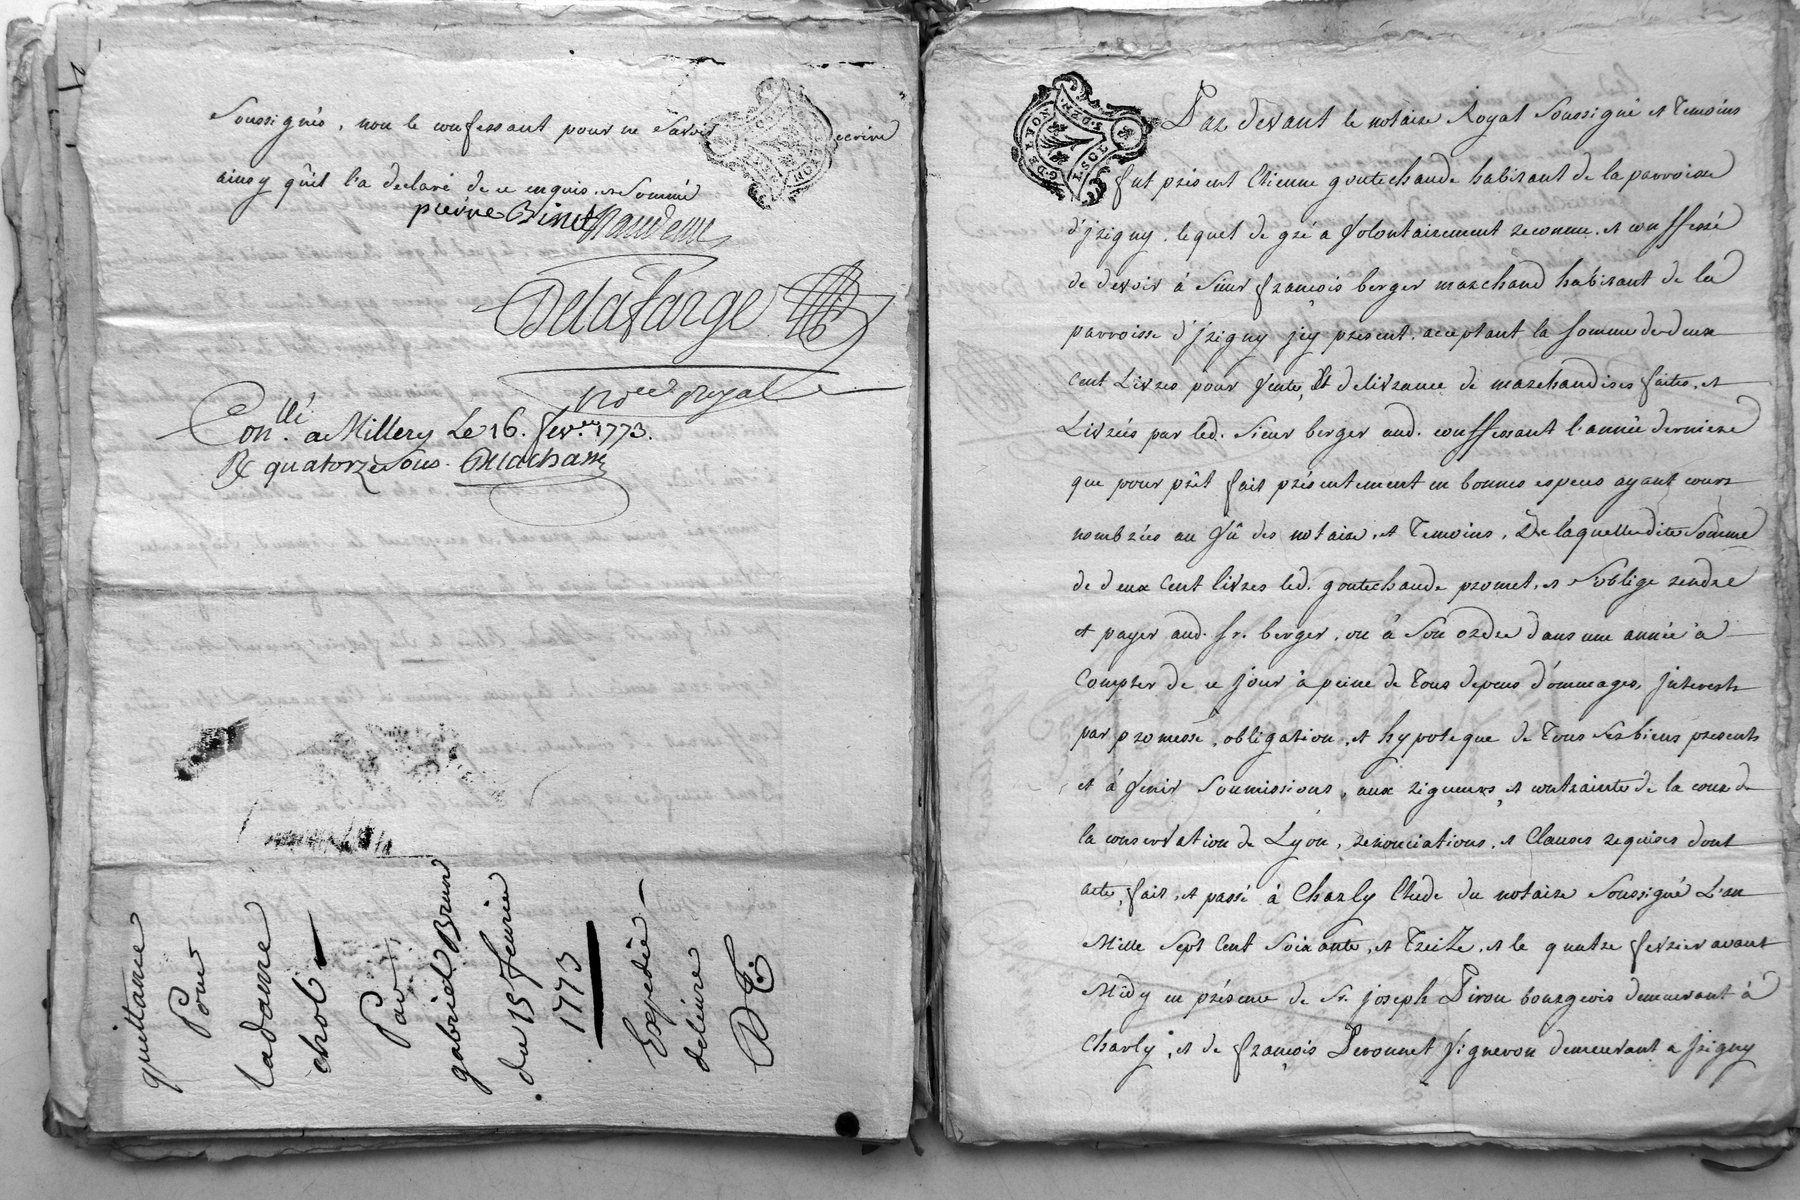 Soussignés, non le confessant pour ne Savoir ecrire
ainsy qu'il l'a declaré de ce enquis et Sommé
pierre Binet
Delafarge
no.re royal
Con.llé a Millery Le 16. fevr. 1773.
R quatorze Sous. Delachasse
quittance
Pour
ladame
chol
Par
gabriel Brun
du 15 feurier
1773
Expediée
deliuré
G.DE LYON
1.SOL
Par devant le notaire Royal Soussigné et Temoins
fut présent Etienne goutechaude habitant de la parroisse
d'jrigny, lequel de gré a Volontairement reconnu et conffessé
de devoir à Sieur françois berger marchand habitant de la
parroisse d'jrigny jcy présent acceptant la Somme de deux
Cent Livres pour Vente, et délivrance de marchandises faites, et
Livrées par led. Sieur berger aud. conffessant l'année derniere
que pour prêt fait présentement en bonnes especes ayant cours
nombrées au Vû des notaire, et Temoins, De laquelle dite Somme
de deux Cent livres led. goutechaude promet, et s'oblige rendre
et payer aud. sr. berger, ou à Son ordre dans une année à
Compter de ce jour à peine de Tous depens d'ommages, jnterests
par promesse, obligation, et hypoteque de Tous Ses biens presents
et à Venir Soumissions, aux rigueurs, et contraintes de la cour de
la conservation de Lyon, renonciations, et Clauses requises dont
acte, fait, et passé à Charly Etude du notaire Soussigné L'an
Mille Sept Cent Soixante, et Treize, et le quatre fevrier avant
Midy en présence de Sr. joseph Piron bourgeois demeurant à
Charly, et de françois Peronnet Vigneron demeurant a jrigny